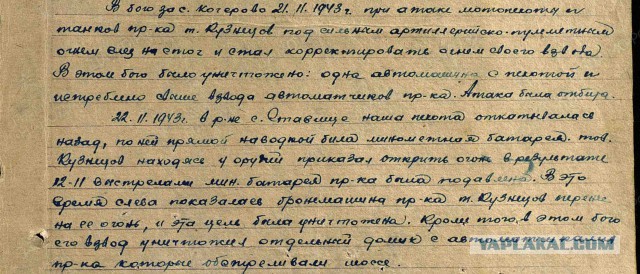 В бою за с. Кочерово 21.11.1943г. при атаке мотопехоты и
танков пр-ка т. Кузнецов под сильным артиллерийско-пулеметным
огнем влез на стог и стал корректировать огнем своего взвода.
В этом бою было уничтожено: одна автомашина с пехотой и
истреблено свыше взвода автоматчиков пр-ка. Атака была отбита.
22.11.1943г. в р-не с. Ставище наша пехота откатывалась
назад, по ней прямой наводкой била минометная батарея. тов.
Кузнецов находясь у орудий приказал открыть огонь в результате
12-11 выстрелами мин. батарея пр-ка была подавлена. В это
время слева показалась бронмашина пр-ка т. Кузнецов перенес
на ее огонь, и эта цель была уничтожена. Кроме того, в этом бою
его взвод уничтожил отдельный домик с автоматчиками
пр-ка которые обстреливали шоссе.
YAPLAKAL.COM